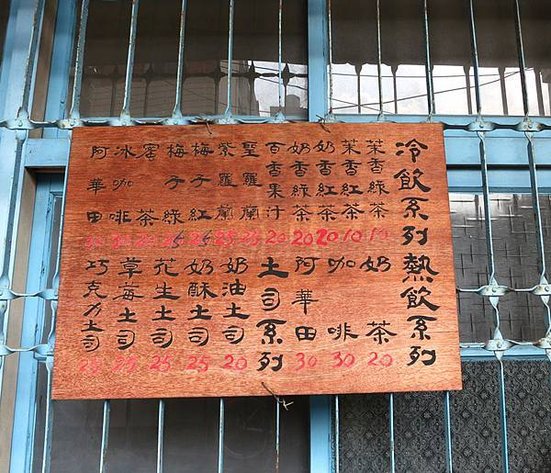 冷飲系列
茉香綠茶 10
茉香紅茶 10
奶香紅茶 20
奶香綠茶 20
百香果汁 20
聖羅蘭
紫羅蘭 25
梅子紅 25
梅子綠 25
蜜茶
冰咖啡
阿華田
熱飲系列
奶茶 20
咖啡 30
阿華田 30
土司系列
奶油土司 20
奶酥土司 25
花生土司 25
草莓土司 25
巧克力土司 25